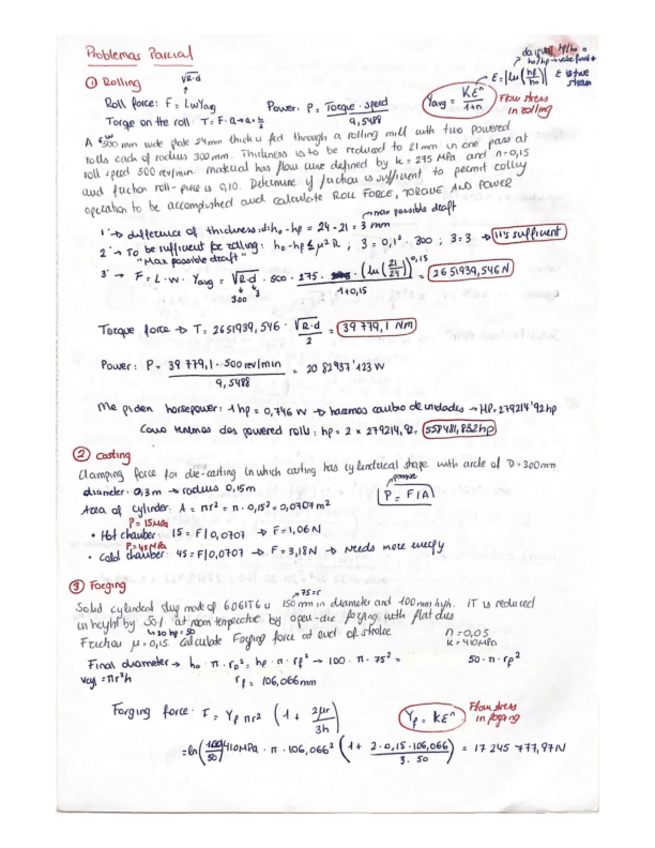 Problemas Parcial
① Rolling
√R·d
Roll force: F = LwYavg
Power: P = Torque · speed / 9,5488
Yavg = Kεⁿ / 1+n
Flow stress in rolling
ε = |ln(hf/ho)| ε is true strain
Torque on the roll
A 500 mm wide plate 24mm thick is fed through a rolling mill with two powered
rolls each of radius 300 mm. Thickness is to be reduced to 21 mm in one pass at
roll speed 500 rev/min. material has flow curve defined by k = 275 MPa and n=0,15
and friction roll-piece is 0,10. Determine if friction is sufficient to permit rolling
operation to be accomplished and calculate ROLL FORCE, TORQUE AND POWER
max possible draft
1 → difference of thickness: d=ho - hf = 24 - 21 = 3 mm
2 → To be sufficient for rolling: ho-hf ≤ μ² R ; 3 = 0,1² · 300 ; 3=3 → It's sufficient
"Max possible draft"
3 → F = L · w · Yavg = √R·d · 500 · 275 · (ln(21/24))^0,15 / 1+0,15 = 2651939,546 N
300 3
Torque force → T = 2651939,546 · √R·d / 2 = 39 779,1 Nm
Power: P = 39 779,1 · 500 rev/min / 9,5488 = 20 82937'423 W
Me piden horsepower: 1 hp = 0,746 W → hacemos cambio de unidades → HP = 279214'92 hp
Como tenemos dos powered rolls: hp = 2 × 279214,92 = 558481,832 hp
② Casting
Clamping force for die-casting in which casting has cylindrical shape with circle of D=300mm
diameter: 0,3 m → radius 0,15m
pressure
P = F/A
Area of cylinder: A = πr² = π · 0,15² = 0,0707 m²
P = 15MPa
• Hot chamber 15 = F / 0,0707 → F = 1,06N
P = 45MPa
• Cold chamber 45 = F/0,0707 → F = 3,18N → Needs more energy
③ Forging
75=r
Solid cylindrical slug made of 6061T6 is 150 mm in diameter and 100 mm high. IT is reduced
in height by 50% at room temperature by open-die forging with flat dies
↳ so hf = 50
Friction μ = 0,15. Calculate Forging force at end of stroke
n = 0,05
K = 410MPa
Final diameter → ho · π · ro² = hf · π · rf² → 100 · π · 75² = 50 · π · rf²
Vcyl = πr²h
rf = 106,066mm
Forging force: F = Yf πr² (1 + 2μr / 3h)
Yf = kεⁿ
Flow stress in forging
= ln(100/50) 410MPa · π · 106,066² (1 + 2 · 0,15 · 106,066 / 3 · 50) = 17 245 777,97N